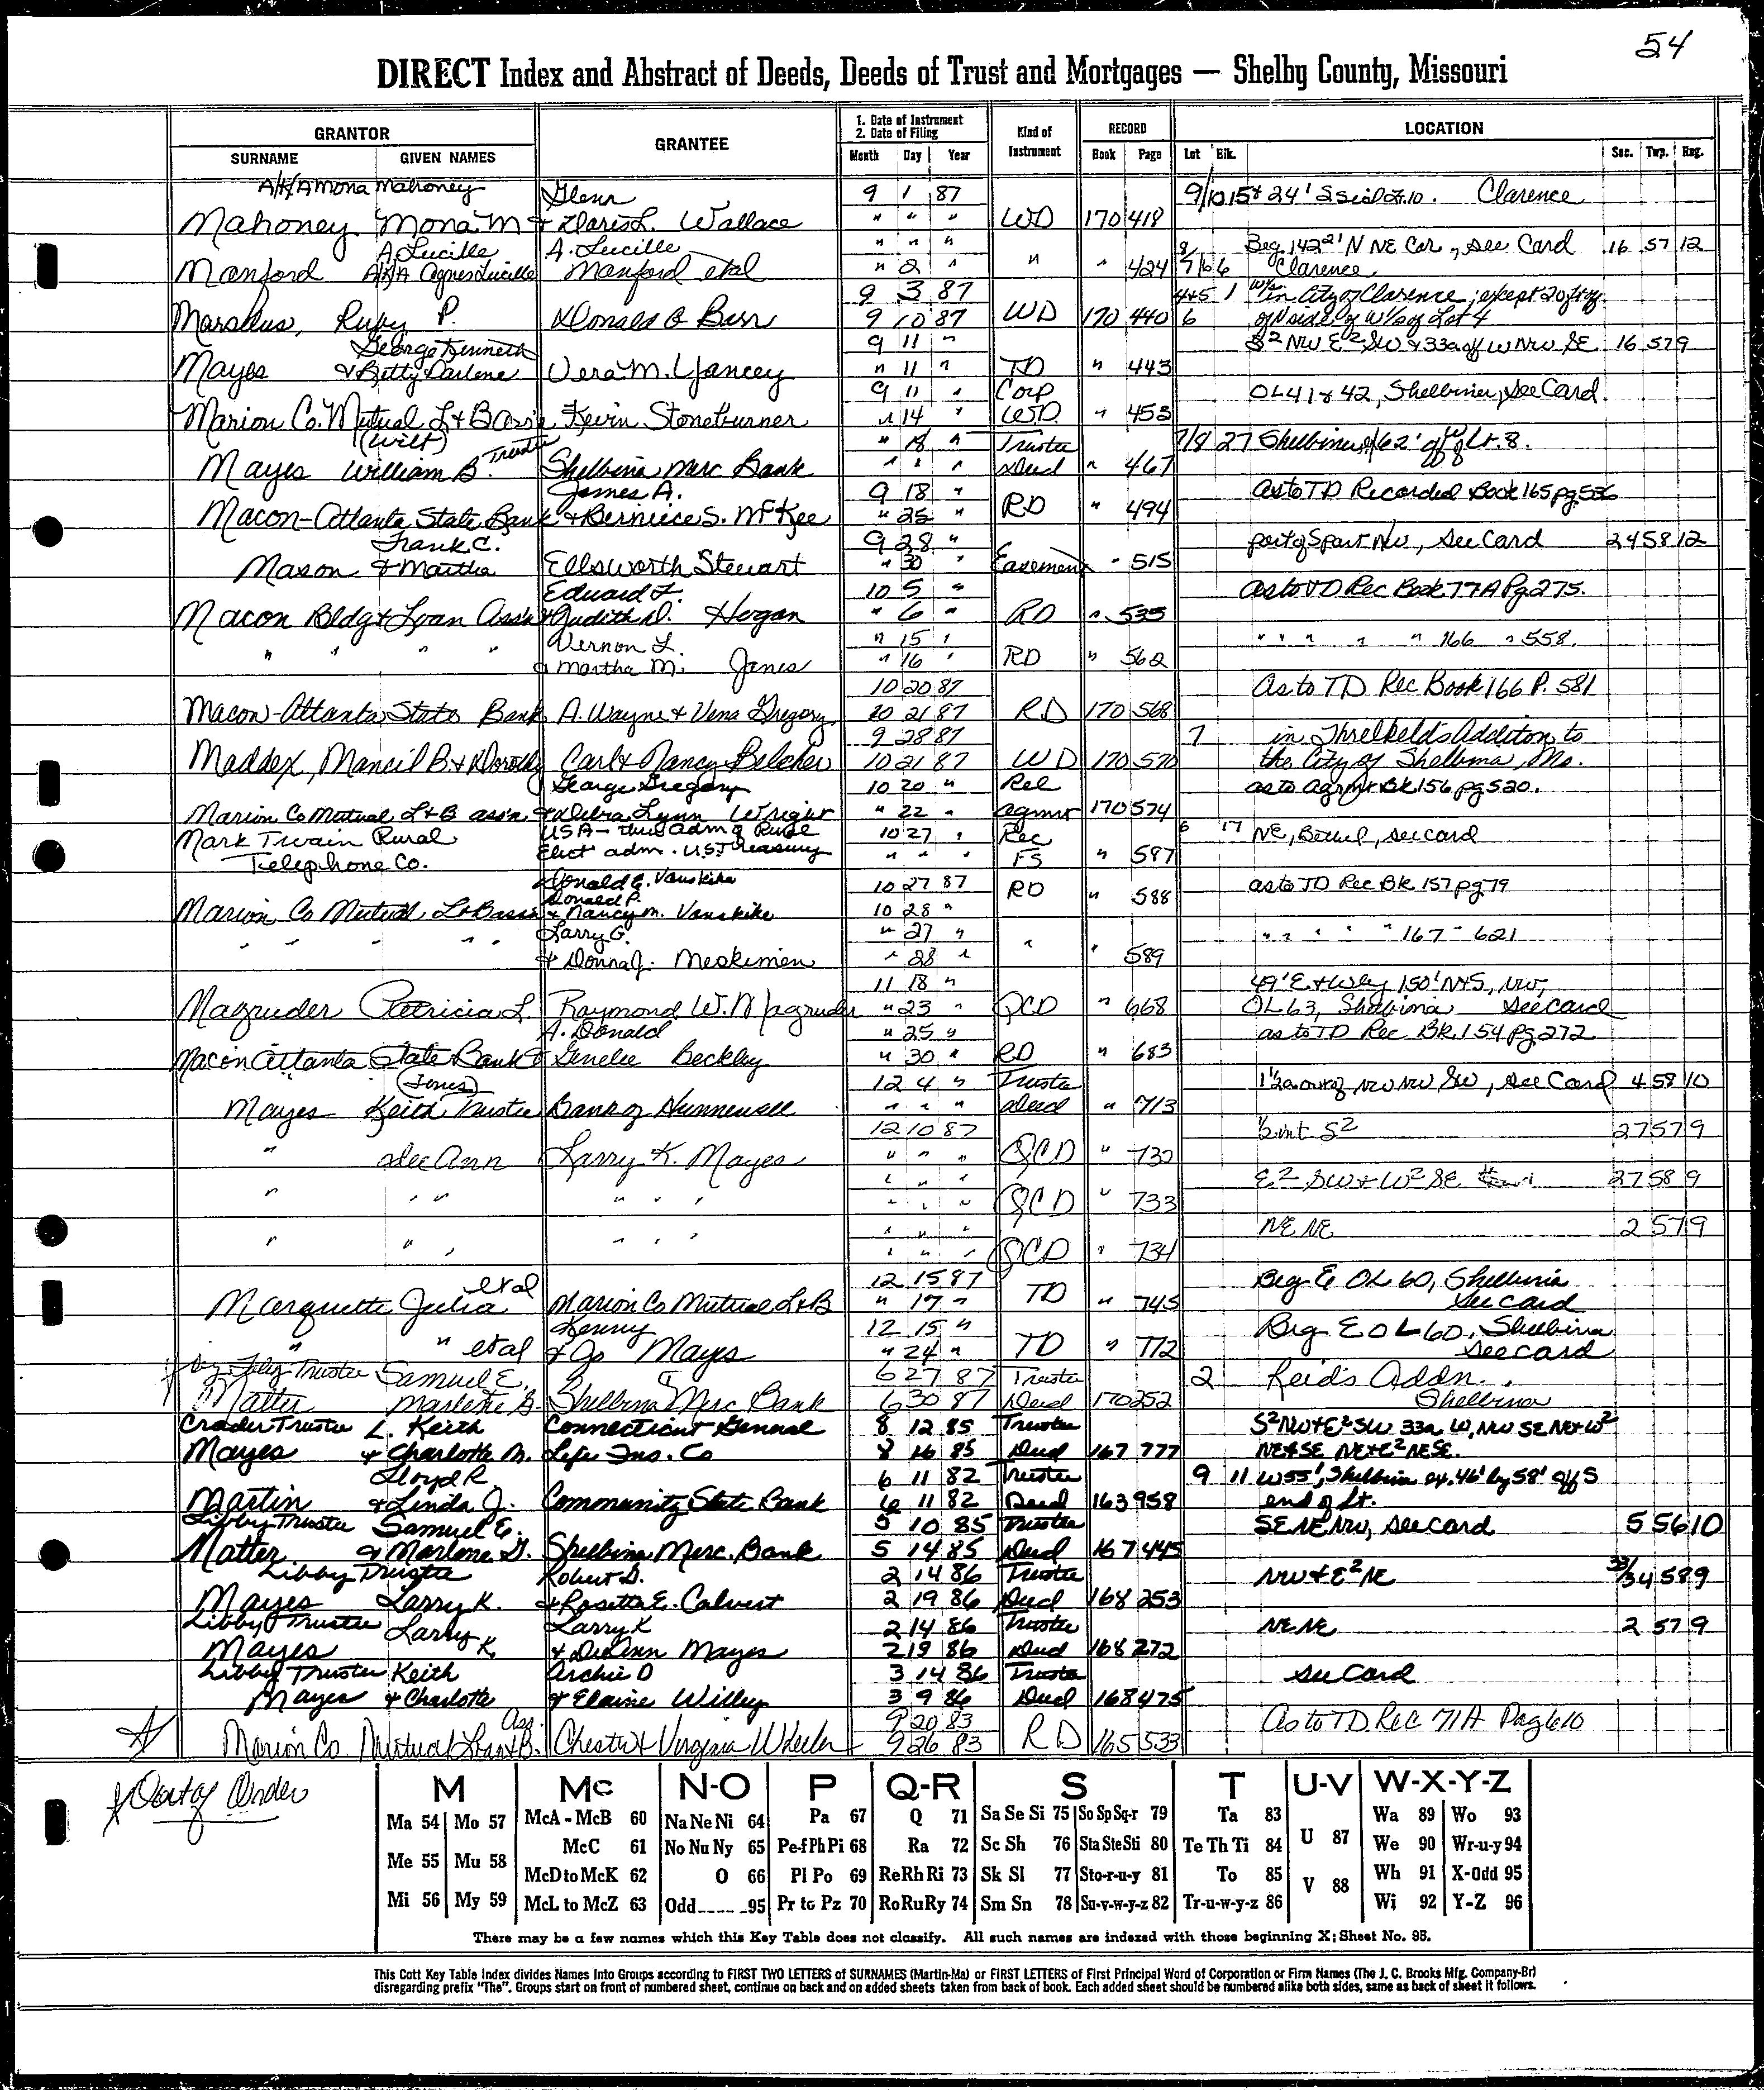 54
DIRECT Index and Abstract of Deeds, Deeds of Trust and Mortgages — Shelby County, Missouri
GRANTOR
SURNAME GIVEN NAMES
GRANTEE
1. Date of Instrument
2. Date of Filing
Month Day Year
Kind of Instrument
RECORD
Book Page
LOCATION
Lot Blk. Sec. Twp. Rng.
A/K/A Mona Mahoney Glenn 9 1 87 9/10 15+ 24' Clarence
Mahoney Mona M & Doris L. Wallace " " " WD 170 418
A. Lucille A. Lucille " " " 8/ Beg 142 2' N NE Cor, see Card 16 57 12
Manford A/K/A Agnes Lucille Manford etal " 2 " " " 424 7/6 6 Clarence
9 3 87 4+5 1 in City of Clarence; except 20 ft of
Ruby P. Donald O Barr 9 10 87 WD 170 440 6 of N side of W/2 of Lot 4
George Kenneth 9 11 " S2 NW E2 SW & 33a off W NW SE 16 57 9
Mayes & Betty Darlene Vera M. Yancey " 11 " TD " 443
9 11 " Corp OL 41 & 42, Shelbina, see Card
Marion Co. Mutual L + B Ass'n Kevin Stoneburner " 14 " WD " 453
(Wilt) " 18 " Trustee 7/8 27 Shelbina, 62' off of Lt. 8.
Mayes William B. Trustee Shelbina Merc Bank " " " Deed " 467
James A. 9 18 " As to TD Recorded Book 165 pg 536
Macon-Atlanta State Bank & Berniece S. McKee " 25 " RD " 494
Frank C. 9 28 " part of S part NW, see Card 24 58 12
Mason & Martha Ellsworth Stewart " 30 " Easement " 515
Edward F. 10 5 " As to TD Rec Book 77A Pg 275.
Macon Bldg & Loan Ass'n & Judith D. Hogan " 6 " RD " 535
Vernon L. " 15 " " " " " " 166 " 558.
" " " " & Martha M. Janes " 16 " RD " 562
10 20 87 As to TD Rec Book 166 P. 581
Macon-Atlanta State Bank A. Wayne & Vena Gregory 10 21 87 RD 170 568
9 28 87 7 in Threlkeld's Addition to
Maddex, Mancil B & Dorothy Carl & Nancy Belcher 10 21 87 WD 170 570 the City of Shelbina, Mo.
George Gregory 10 20 " Rel as to Agrmt Bk 156 pg 520.
Marion Co Mutual L+B ass'n & Debra Lynn Wright " 22 " agmt 170 574
Mark Twain Rural USA - thru adm of Rural 10 27 " Rec 6 17 NE, Bethel, see card
Telephone Co. Elect adm. US Treasury " " " FS " 587
Donald E. Vanskike 10 27 87 RD " 588 as to TD Rec Bk 157 pg 79
Donald P.
Marion Co Mutual L+B assn & Nancy M. Vanskike 10 28 "
Larry G. " 27 " " " " " " 167 " 621
" " " " " & Donna J. Meskimen " 28 " " " 589
11 18 " 49' E & Wly 150' N+S, NW,
Magruder Patricia L Raymond W. Magruder " 23 " QCD " 668 OL 63, Shelbina see card
A. Donald " 25 " as to TD Rec Bk 154 pg 272
Macon Atlanta State Bank & Genelee Beckley " 30 " RD " 683
(Jones) 12 4 " Trustee 1½a NW NW SW, see Card 4 58 10
Mayes Keith Trustee Bank of Hunnewell " " " Deed " 713
12 10 87 ½ int S2 27 57 9
" Dee Ann Larry K. Mayes " " " QCD " 732
" " " E2 SW & W2 SE 27 58 9
" " " " " " " " " QCD " 733
" " " NE NE 2 57 9
" " " " " " " " " QCD " 734
etal 12 15 87 Beg E OL 60, Shelbina
Marquette Julia Marion Co Mutual L+B " 17 " TD " 745 see card
Kenny 12 15 " Beg E OL 60, Shelbina
" " etal & Jo Mays " 24 " TD " 772 see card
Trustee Samuel E. 6 27 87 Trustee 2 Reid's Addn.
Matter Marlene G. Shelbina Merc Bank 6 30 87 Deed 170 252 Shelbina
Crader Trustee L. Keith Connecticut General 8 12 85 Trustee S2 NW & E2 SW 33a W, NW SE NE & W2
Mayes & Charlotte M. Life Ins. Co 8 16 85 Deed 167 777 NE & SE NE & E2 NE SE.
Lloyd R 6 11 82 Trustee 9 11 W 55', Shelbina ex. 46' by 58' off S
Martin & Linda J. Community State Bank 6 11 82 Deed 163 958 end of Lt.
Libby Trustee Samuel E. 5 10 85 Trustee SE NE NW, see card 5 56 10
Matter & Marlene G. Shelbina Merc. Bank 5 14 85 Deed 167 445
Libby Trustee Robert D. 2 14 86 Trustee NW & E2 NE 33/34 58 9
Mayes Larry K. & Rosetta E. Calvert 2 19 86 Deed 168 253
Libby Trustee Larry K Larry K 2 14 86 Trustee NE NE 2 57 9
Mayes & DeAnn Mayes 2 19 86 Deed 168 272
Libby Trustee Keith Archie D 3 14 86 Trustee see Card
Mayes & Charlotte & Elaine Willey 3 9 86 Deed 168 475
Ass. 9 20 83 As to TD Rec 71A Pag 610
Marion Co Mutual Loan & B. Chester & Virginia Wheeler 9 26 83 RD 165 533
Out of Order
M Mc N-O P Q-R S T U-V W-X-Y-Z
Ma 54 Mo 57 McA - McB 60 Na Ne Ni 64 Pa 67 Q 71 Sa Se Si 75 So Sp Sq-r 79 Ta 83 U 87 Wa 89 Wo 93
McC 61 No Nu Ny 65 Pe-f Ph Pi 68 Ra 72 Sc Sh 76 Sta Ste Sti 80 Te Th Ti 84 We 90 Wr-u-y 94
Me 55 Mu 58 McD to McK 62 O 66 Pl Po 69 Re Rh Ri 73 Sk Sl 77 Sto-r-u-y 81 To 85 V 88 Wh 91 X-Odd 95
Mi 56 My 59 McL to McZ 63 Odd 95 Pr to Pz 70 Ro Ru Ry 74 Sm Sn 78 Su-v-w-y-z 82 Tr-u-w-y-z 86 Wi 92 Y-Z 96
There may be a few names which this Key Table does not classify. All such names are indexed with those beginning X; Sheet No. 95.
This Cott Key Table Index divides Names Into Groups according to FIRST TWO LETTERS of SURNAMES (Martin-Ma) or FIRST LETTERS of First Principal Word of Corporation or Firm Names (The J. C. Brooks Mfg. Company-Br)
disregarding prefix "The". Groups start on front of numbered sheet, continue on back and on added sheets taken from back of book. Each added sheet should be numbered alike both sides, same as back of sheet it follows.